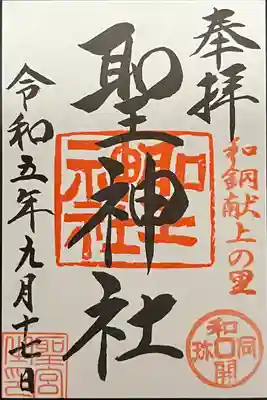 奉拝
和銅献上の里
和同開珎
聖神社
聖神社
令和五年九月十七日
聖宮